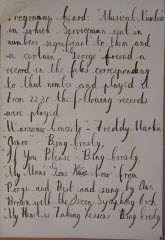 Programme heard: Musical Number
in which Serviceman sent in
numbers significant to them and
a certain George found a
record in the files corresponding
to that number and played it
From 22.30 the following records
were played
Warsaw Concerto - Freddy Martin
Bing Crosby.
If You Please - Bing Crosby.
My Man's Gone Now from
Porgy and Bess and sung by Ann
Brown with the Decca Symphony Orch
My Heart is Taking Lessons Bing Crosby